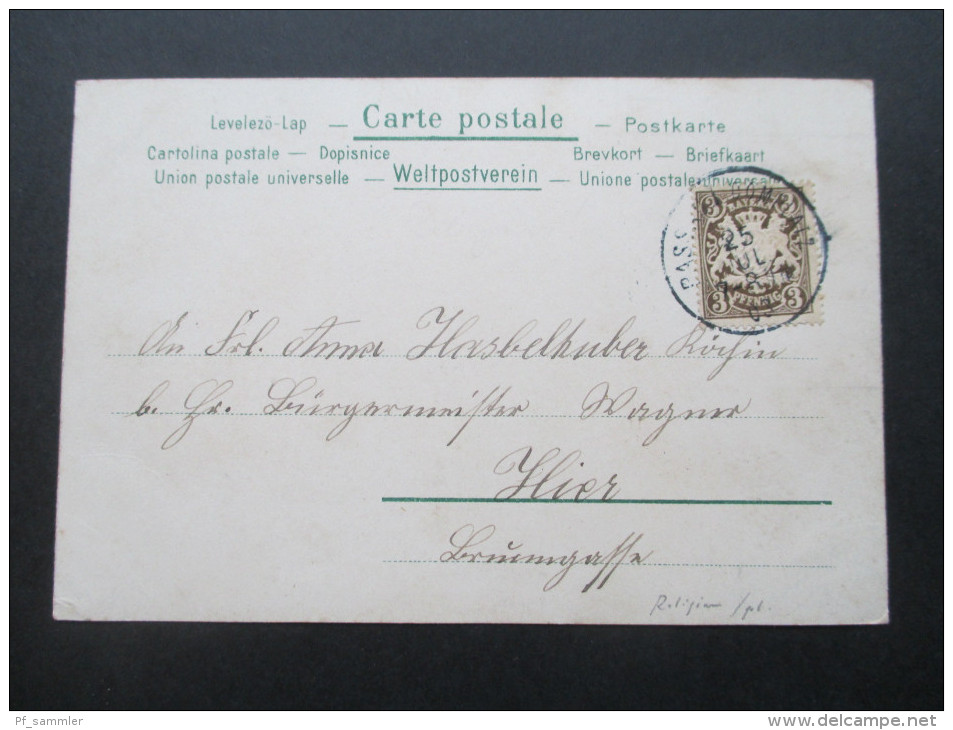 Levelezö-Lap — Carte postale — Postkarte
Cartolina postale — Dopisnice Brevkort — Briefkaart
Union postale universelle — Weltpostverein — Unione postale universale
3
25
JUL
3 PFENNIG 3
An Frl. Anna Hasbelhuber Köchin
b. Hr. Bürgermeister Wagner
Hier
Brunngasse
Religion
Pf_sammler
www.delcampe.net